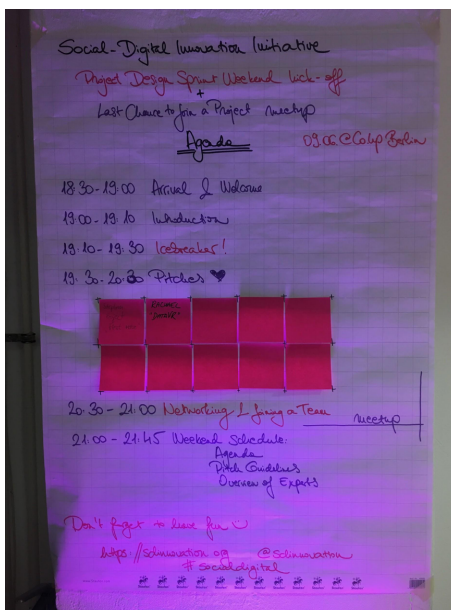 Social-Digital Innovation Initiative
Project Design Sprint Weekend kick-off
+
Last Chance to join a Project meetup
Agenda
09.06. @ Colup Berlin
18:30-19:00 Arrival & Welcome
19:00-19:10 Introduction
19:10-19:30 Icebreaker!
19:30-20:30 Pitches ♥
20:30-21:00 Networking & joining a Team
meetup
21:00-21:45 Weekend Schedule:
Agenda
Pitch Guidelines
Overview of Experts
Don't forget to have fun ☺
https://sdinnovation.org @sdinnovation
#socialdigital